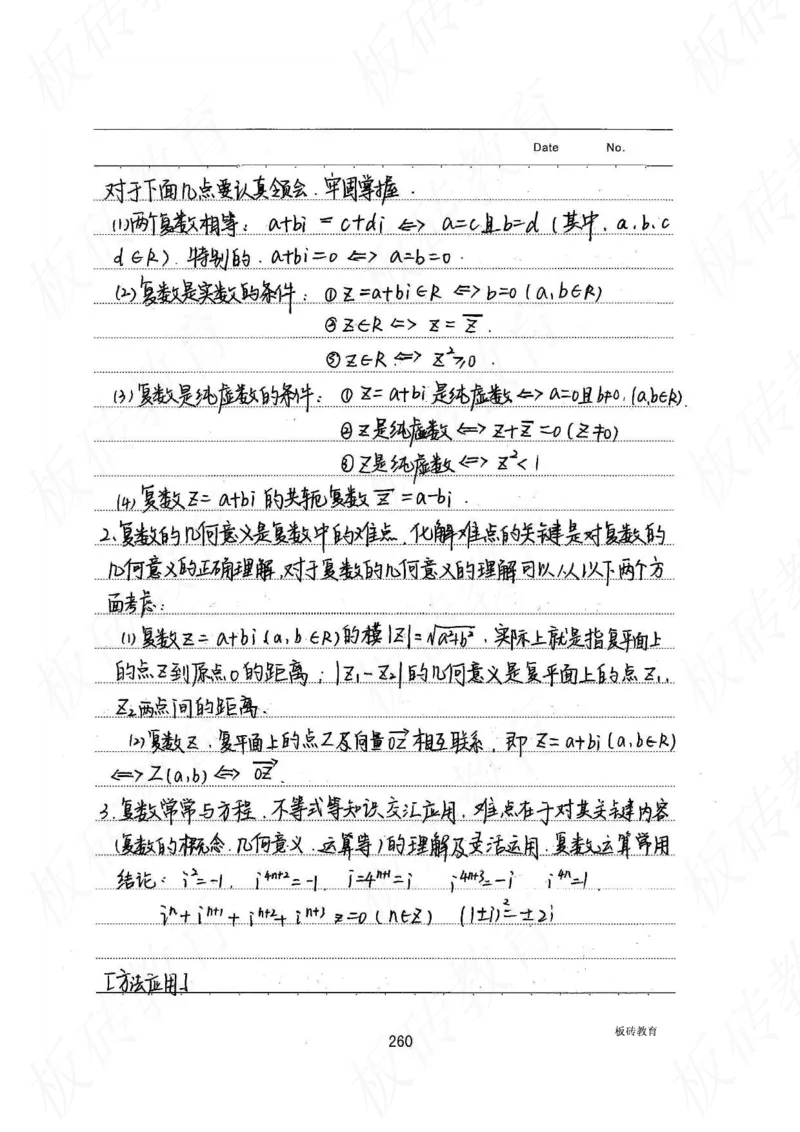 Date No.
对于下面几点要认真领会.牢固掌握.
(1)两个复数相等: a+bi = c+di <=> a=c且b=d (其中.a.b.c
d∈R). 特别的.a+bi=0 <=> a=b=0.
(2)复数是实数的条件: ①z=a+bi∈R <=> b=0 (a,b∈R)
②z∈R <=> z=z̅.
③z∈R <=> z²≥0.
(3)复数是纯虚数的条件: ①z=a+bi是纯虚数<=>a=0且b≠0.(a,b∈R).
②z是纯虚数<=>z+z̅=0(z≠0)
③z是纯虚数<=>z²<1
(4)复数z=a+bi的共轭复数z̅=a-bi.
2.复数的几何意义是复数中的难点.化解难点的关键是对复数的
几何意义的正确理解,对于复数的几何意义的理解可以从以下两个方
面考虑:
(1)复数z=a+bi(a,b∈R)的模|z|=√a²+b².实际上就是指复平面上
的点z到原点o的距离;|z₁-z₂|的几何意义是复平面上的点z₁,
z₂两点间的距离.
(2)复数z.复平面上的点Z及向量OZ→相互联系,即z=a+bi(a,b∈R)
<=>Z(a,b)<=>OZ→.
3.复数常常与方程.不等式等知识交汇应用,难点在于对其关键内容
(复数的概念.几何意义.运算等)的理解及灵活运用.复数运算常用
结论: i²=-1, i⁴ⁿ⁺²=-1, i=4ⁿ⁺¹=i i⁴ⁿ⁺³=-i i⁴ⁿ=1
iⁿ+iⁿ⁺¹+iⁿ⁺²+iⁿ⁺³=0(n∈Z) (1±i)²=±2i
[方法应用]
板砖教育
260